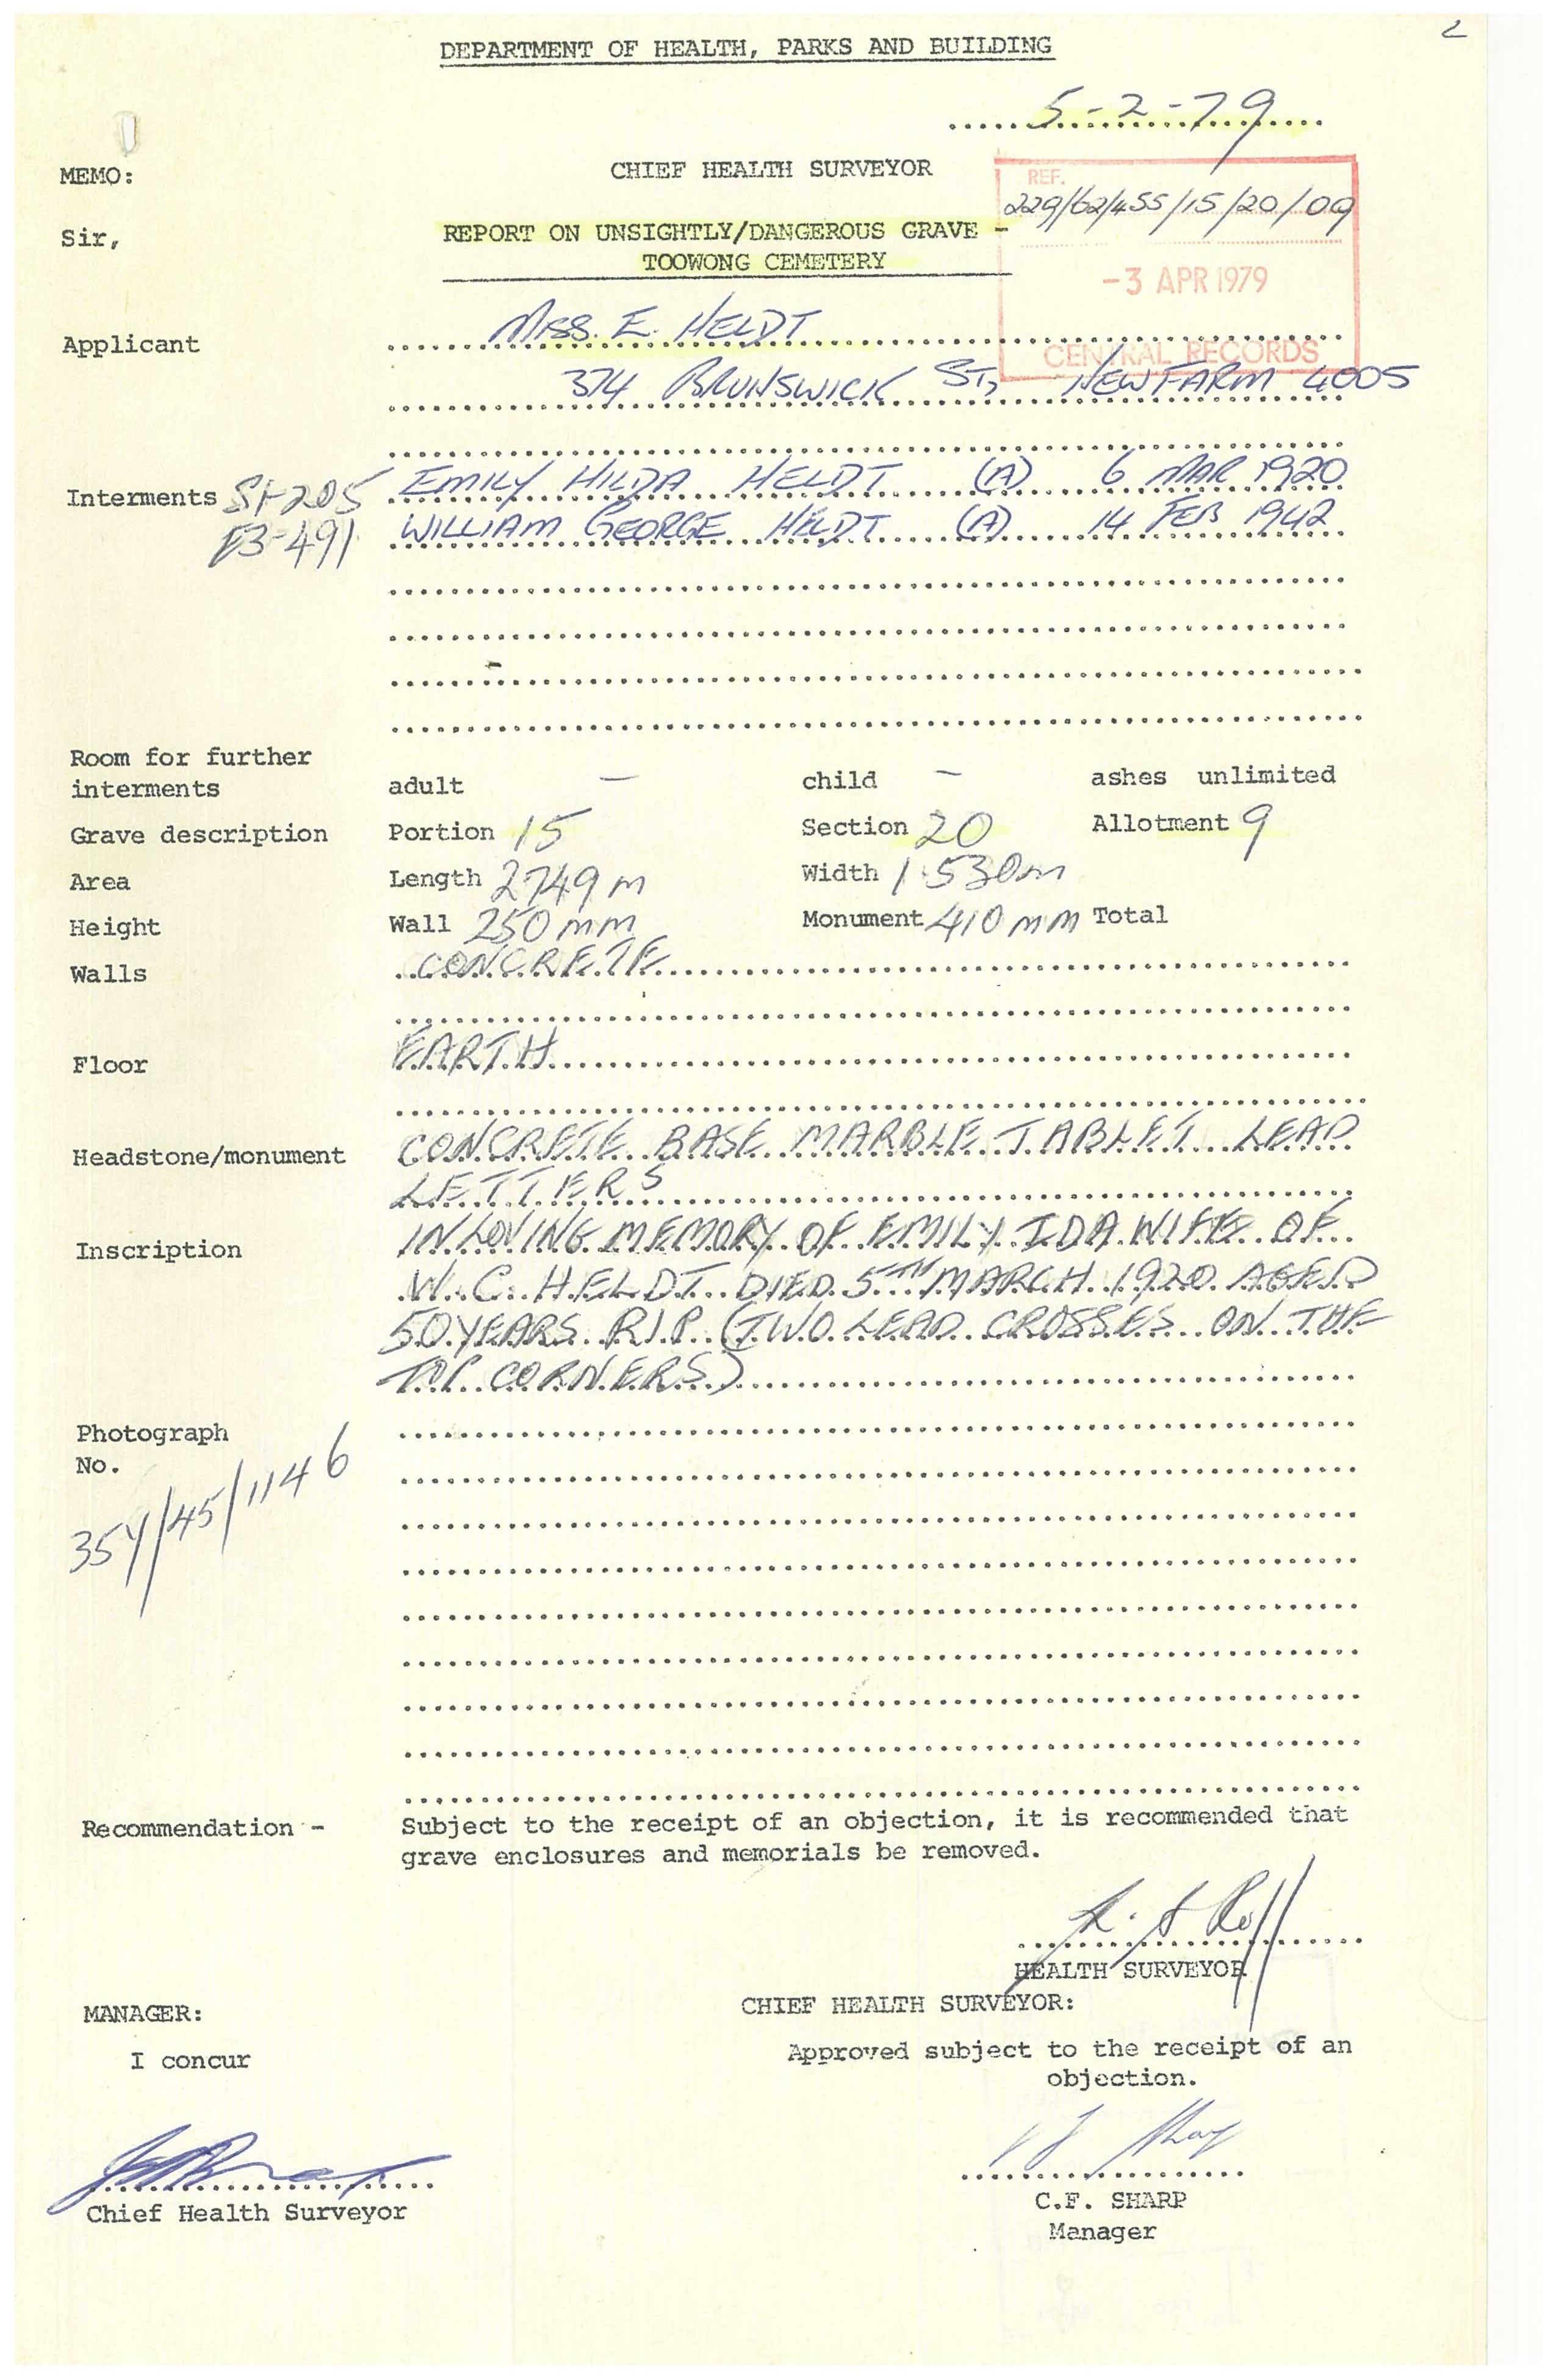 2
DEPARTMENT OF HEALTH, PARKS AND BUILDING
5-2-79
MEMO: CHIEF HEALTH SURVEYOR
REF.
229/62/455/15/20/09
Sir, REPORT ON UNSIGHTLY/DANGEROUS GRAVE -
TOOWONG CEMETERY
-3 APR 1979
CENTRAL RECORDS
Applicant MRS. E. HELDT
374 BRUNSWICK ST, NEW FARM 4005
Interments EMILY HILDA HELDT (A) 6 MAR 1920
WILLIAM GEORGE HELDT (A) 14 FEB 1942
Room for further
interments adult - child - ashes unlimited
Grave description Portion 15 Section 20 Allotment 9
Area Length 2749 m Width 1.530m
Height Wall 250 mm Monument 410 mm Total
Walls CONCRETE
Floor EARTH
Headstone/monument CONCRETE BASE MARBLE TABLET LEAD
LETTERS
Inscription IN LOVING MEMORY OF EMILY IDA WIFE OF
W. C. HELDT DIED 5TH MARCH 1920 AGED
50 YEARS R.I.P. (TWO LEAD CROSSES ON THE
TOP CORNERS)
Photograph
No.
354/45/1146
Recommendation - Subject to the receipt of an objection, it is recommended that
grave enclosures and memorials be removed.
HEALTH SURVEYOR
MANAGER: CHIEF HEALTH SURVEYOR:
I concur Approved subject to the receipt of an
objection.
Chief Health Surveyor C.F. SHARP
Manager